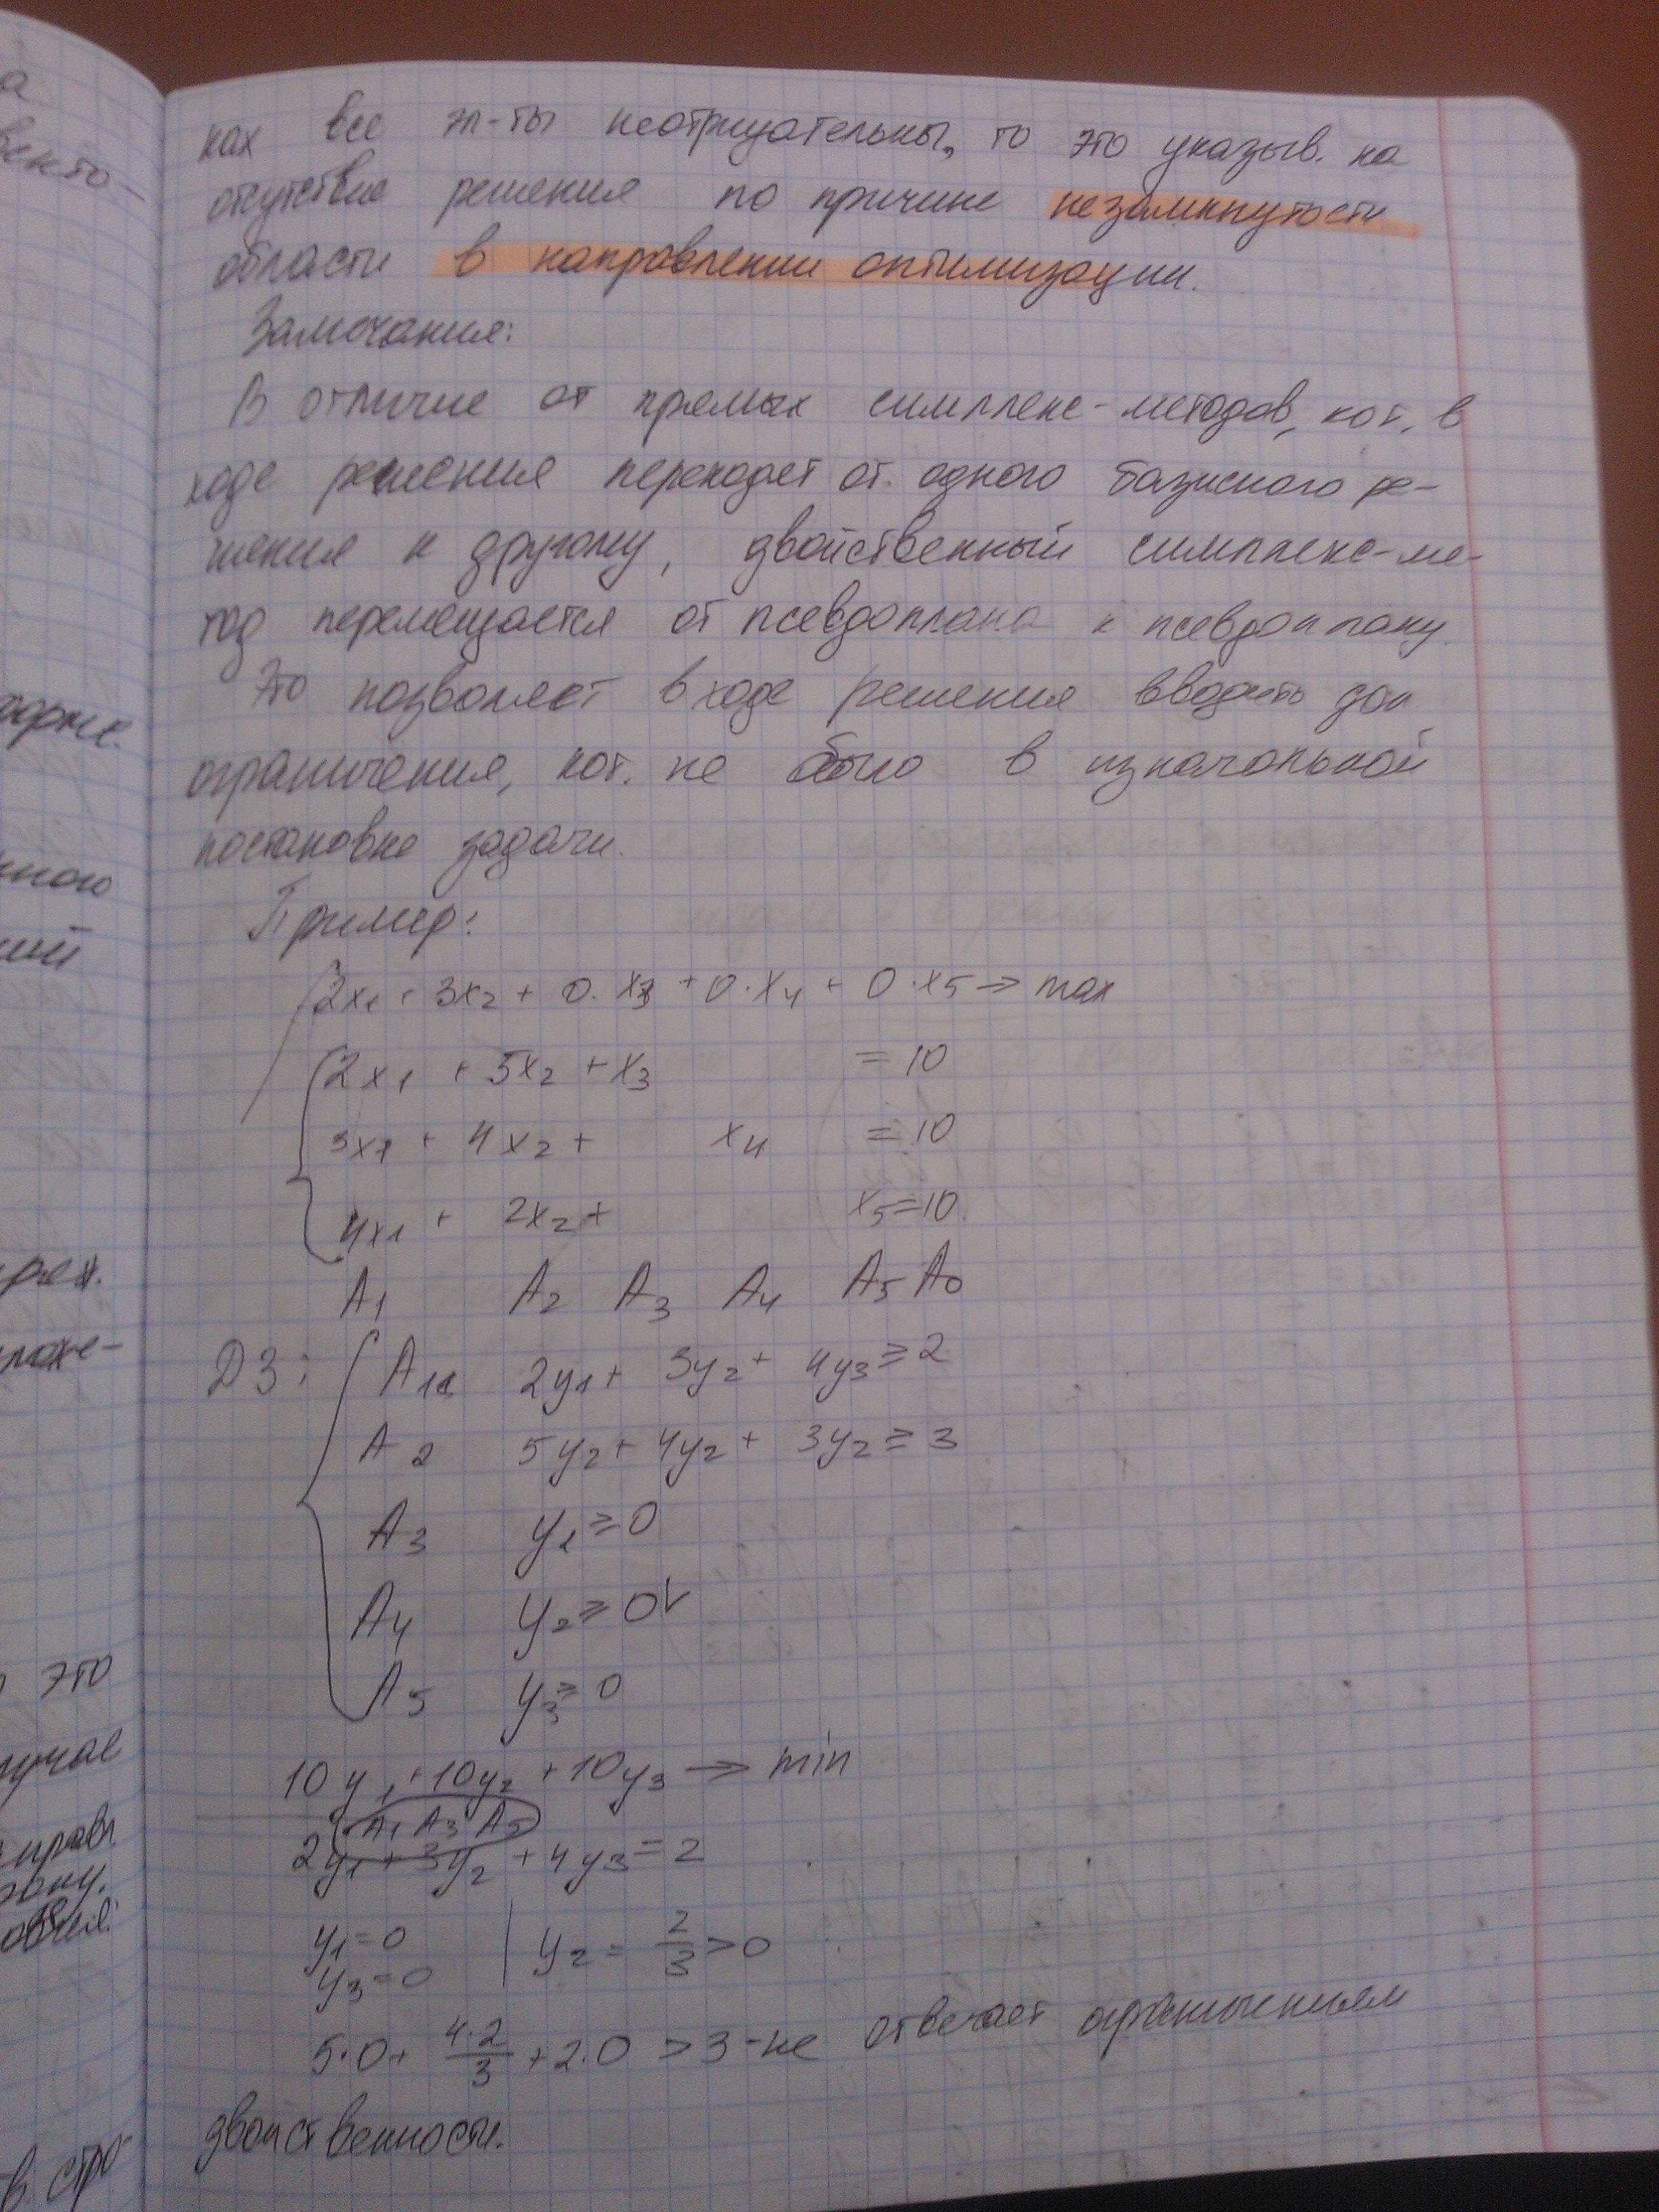 ках все эл-ты неотрицательны, то это указыв. на
отсутствие решения по причине незамкнутости
области в направлении оптимизации.
Замечания:
В отличие от прямых симплекс-методов, кот. в
ходе решения переходят от одного базисного ре-
шения к другому, двойственный симплекс-ме-
тод перемещается от псевдоплана к псевдоплану.
Это позволяет в ходе решения вводить доп.
ограничения, кот. не было в изначальной
постановке задачи.
Пример:
2x1 + 3x2 + 0·x3 + 0·x4 + 0·x5 → max
2x1 + 5x2 + x3 = 10
3x1 + 4x2 + x4 = 10
4x1 + 2x2 + x5 = 10
A1 A2 A3 A4 A5 A0
ДЗ: A1 2y1 + 3y2 + 4y3 ≥ 2
A2 5y2 + 4y2 + 3y2 ≥ 3
A3 y1 ≥ 0
A4 y2 ≥ 0 V
A5 y3 ≥ 0
10y1 + 10y2 + 10y3 → min
A1 A3 A5
2y1 + 3y2 + 4y3 = 2
y1 = 0 | y2 = 2/3 > 0
y3 = 0
5·0 + 4·2/3 + 2·0 > 3 - не отвечает ограничениям
двойственности.
а
векто-
ного
ший
рех.
ложе-
это
лучае
в. стро-